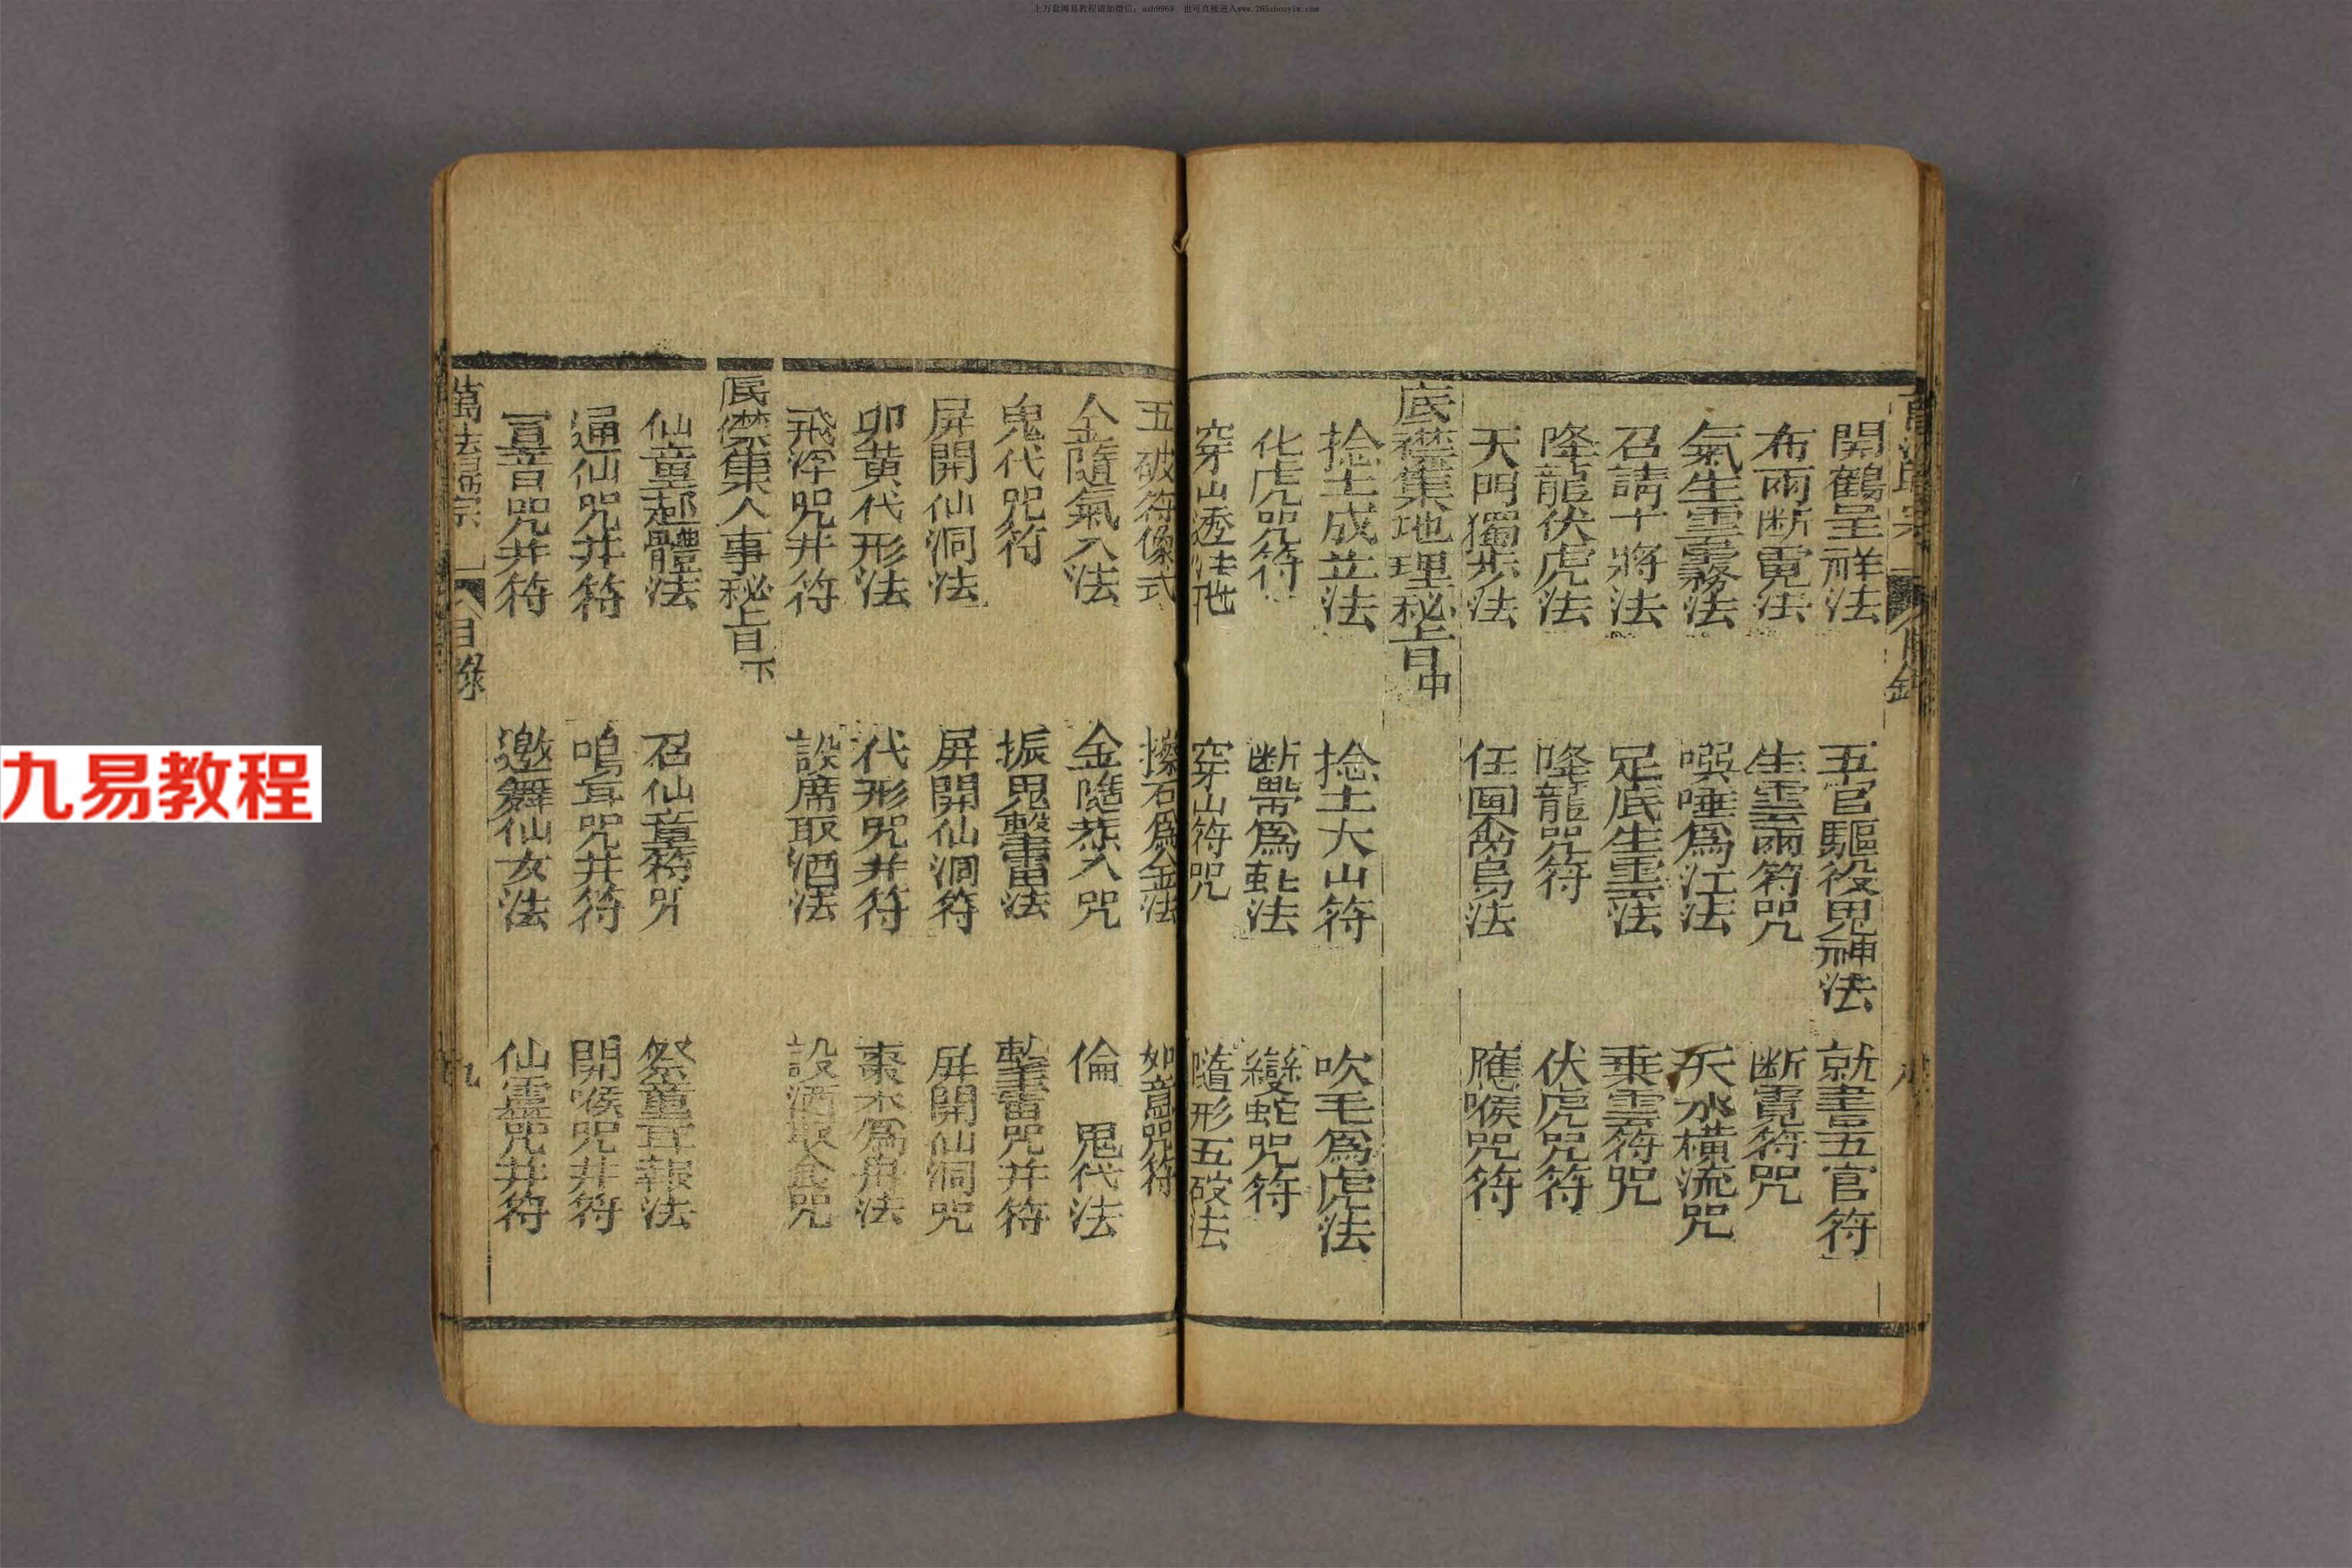 上万套周易教程请加微信：auh9969　也可直接进入www.265zhouyiw.com
九易教程
開鶴呈祥法　五官驅役鬼神法　就書五官符
布雨断霓法　生雲雨符咒　断霓符咒
氣生雲霧法　噀唾爲江法　天水橫流咒
召請十將法　足底生雲法　乗雲符咒
降龍伏虎法　降龍咒符　伏虎咒符
天門獨步法　任画禽鳥法　應喉咒符
底襟集地理秘旨中
捻土成莊法　捻土大山符　吹毛爲虎法
化虎咒符　断帶爲虵法　變蛇咒符
穿山透法地　穿山符咒　隨形五破法
五破符像式　擦石爲金法　如意咒符
金隨氣入法　金隨炁入咒　倫　鬼代法
鬼代咒符　振鬼擊雷法　擊雷咒并符
屏開仙洞法　屏開仙洞符　屏開仙洞咒
卯黄代形法　代形咒并符　棗木爲舟法
飛浮咒并符　設席取酒法　設酒取食咒
底襟集人事秘旨下
仙童起體法　召仙童符咒　祭童耳報法
通仙咒并符　鳴耳咒井符　開喉咒井符
咒井符　邀舞仙女法　仙靈咒井符
萬法歸宗　目錄　九